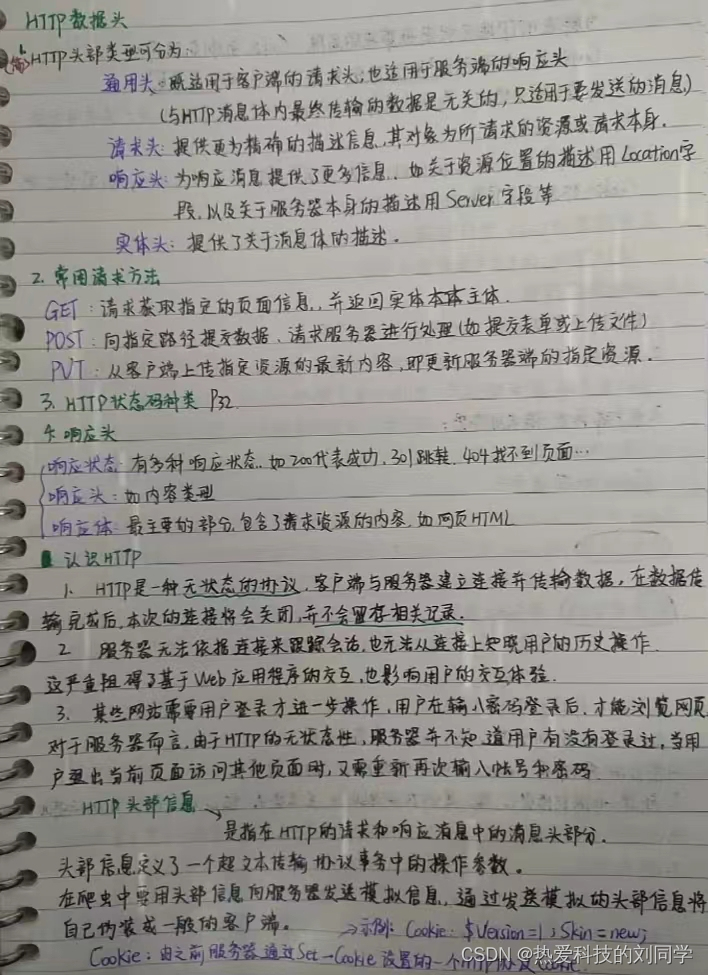 HTTP数据头
HTTP头部类型可分为:
通用头:既适用于客户端的请求头,也适用于服务端的响应头
(与HTTP消息体内最终传输的数据是无关的,只适用于要发送的消息)
请求头:提供更为精确的描述信息,其对象为所请求的资源或请求本身.
响应头:为响应消息提供了更多信息,如关于资源位置的描述用Location字
段,以及关于服务器本身的描述用Server字段等
实体头:提供了关于消息体的描述。
2.常用请求方法
GET:请求获取指定的页面信息,并返回实体本体主体.
POST:向指定路径提交数据、请求服务器进行处理(如提交表单或上传文件)
PUT:从客户端上传指定资源的最新内容,即更新服务器端的指定资源.
3.HTTP状态码种类 P32
4.响应头
响应状态:有多种响应状态,如200代表成功,301跳转,404找不到页面…
响应头:如内容类型
响应体:最主要的部分,包含了请求资源的内容,如网页HTML
认识HTTP
1、HTTP是一种无状态的协议,客户端与服务器建立连接并传输数据,在数据传
输完成后,本次的连接将会关闭,并不会留存相关记录.
2 服务器无法依据连接来跟踪会话,也无法从连接上知晓用户的历史操作.
这严重阻碍了基于Web应用程序的交互,也影响用户的交互体验.
3、某些网站需要用户登录才进一步操作,用户在输入密码登录后,才能浏览网页
对于服务器而言,由于HTTP的无状态性,服务器并不知道用户有没有登录过,当用
户退出当前页面访问其他页面时,又需重新再次输入帐号和密码.
HTTP头部信息
是指在HTTP的请求和响应消息中的消息头部分.
头部信息定义了一个超文本传输协议事务中的操作参数。
在爬虫中要用头部信息向服务器发送模拟信息,通过发送模拟的头部信息将
自己伪装成一般的客户端。 →示例: Cookie: $Version=1;Skin=new;
Cookie:由之前服务器通过Set-Cookie设置的一个HTTP协议Cookie
CSDN @热爱科技的刘同学